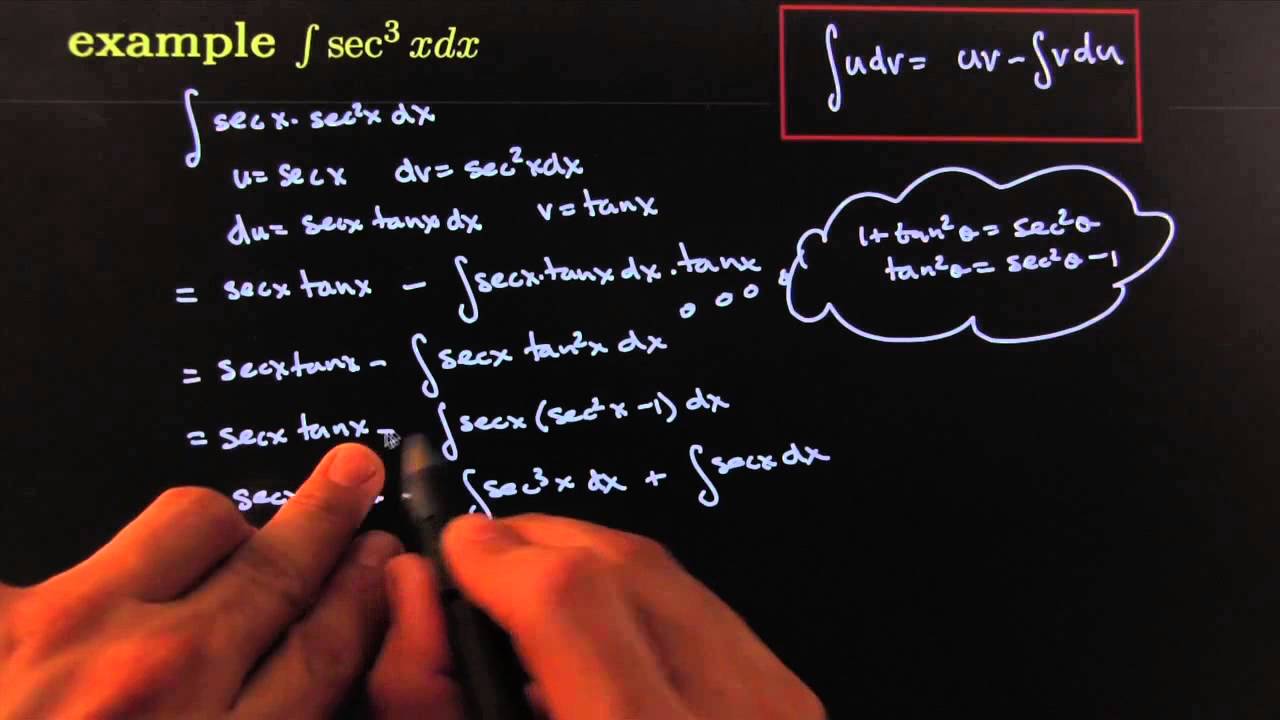 example ∫ sec³ xdx
∫udv = uv - ∫vdu
∫ secx · sec²x dx
u = secx dv = sec²xdx
du = secx tanx dx v = tanx
1 + tan²θ = sec²θ
tan²θ = sec²θ - 1
= secx tanx - ∫secx·tanx dx · tanx
= secxtanx - ∫ secx tan²x dx
= secx tanx - ∫ secx (sec²x - 1) dx
∫ sec³x dx + ∫ secx dx